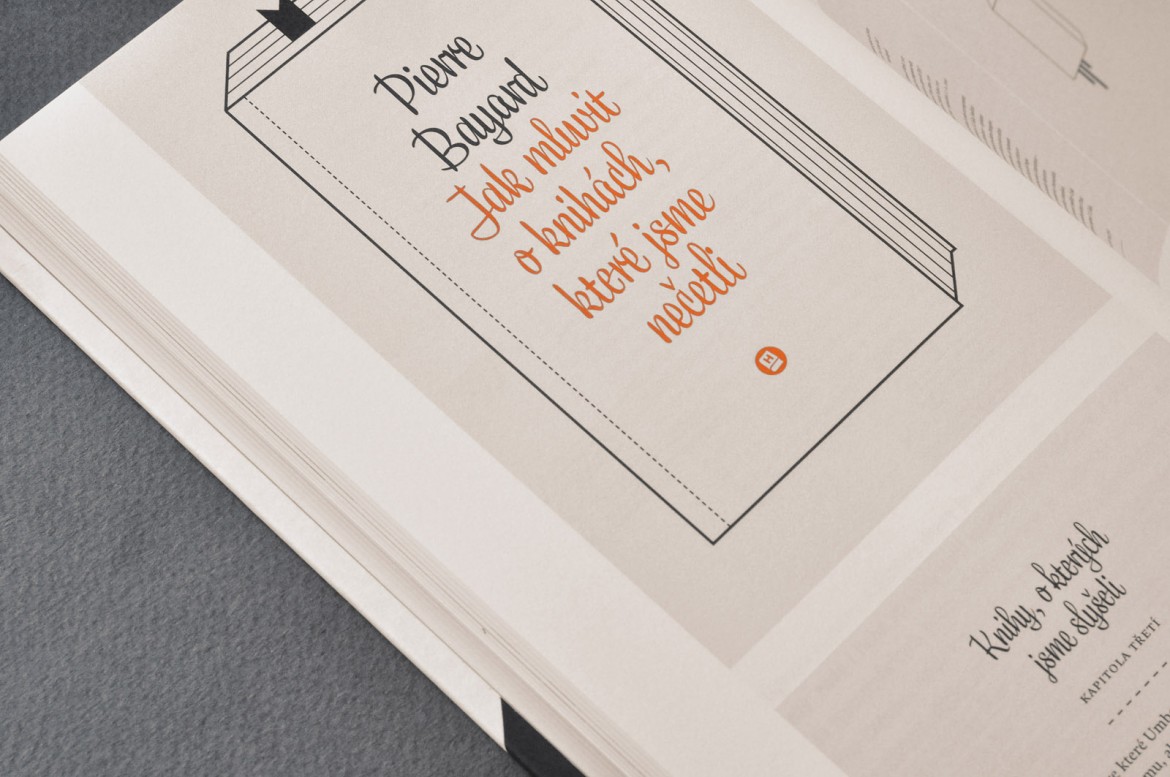 Pierre
Bayard
Jak mluvit
o knihách,
které jsme
nečetli
H
Knihy, o kterých
jsme slyšeli
KAPITOLA TŘETÍ
které Umb
mu, a